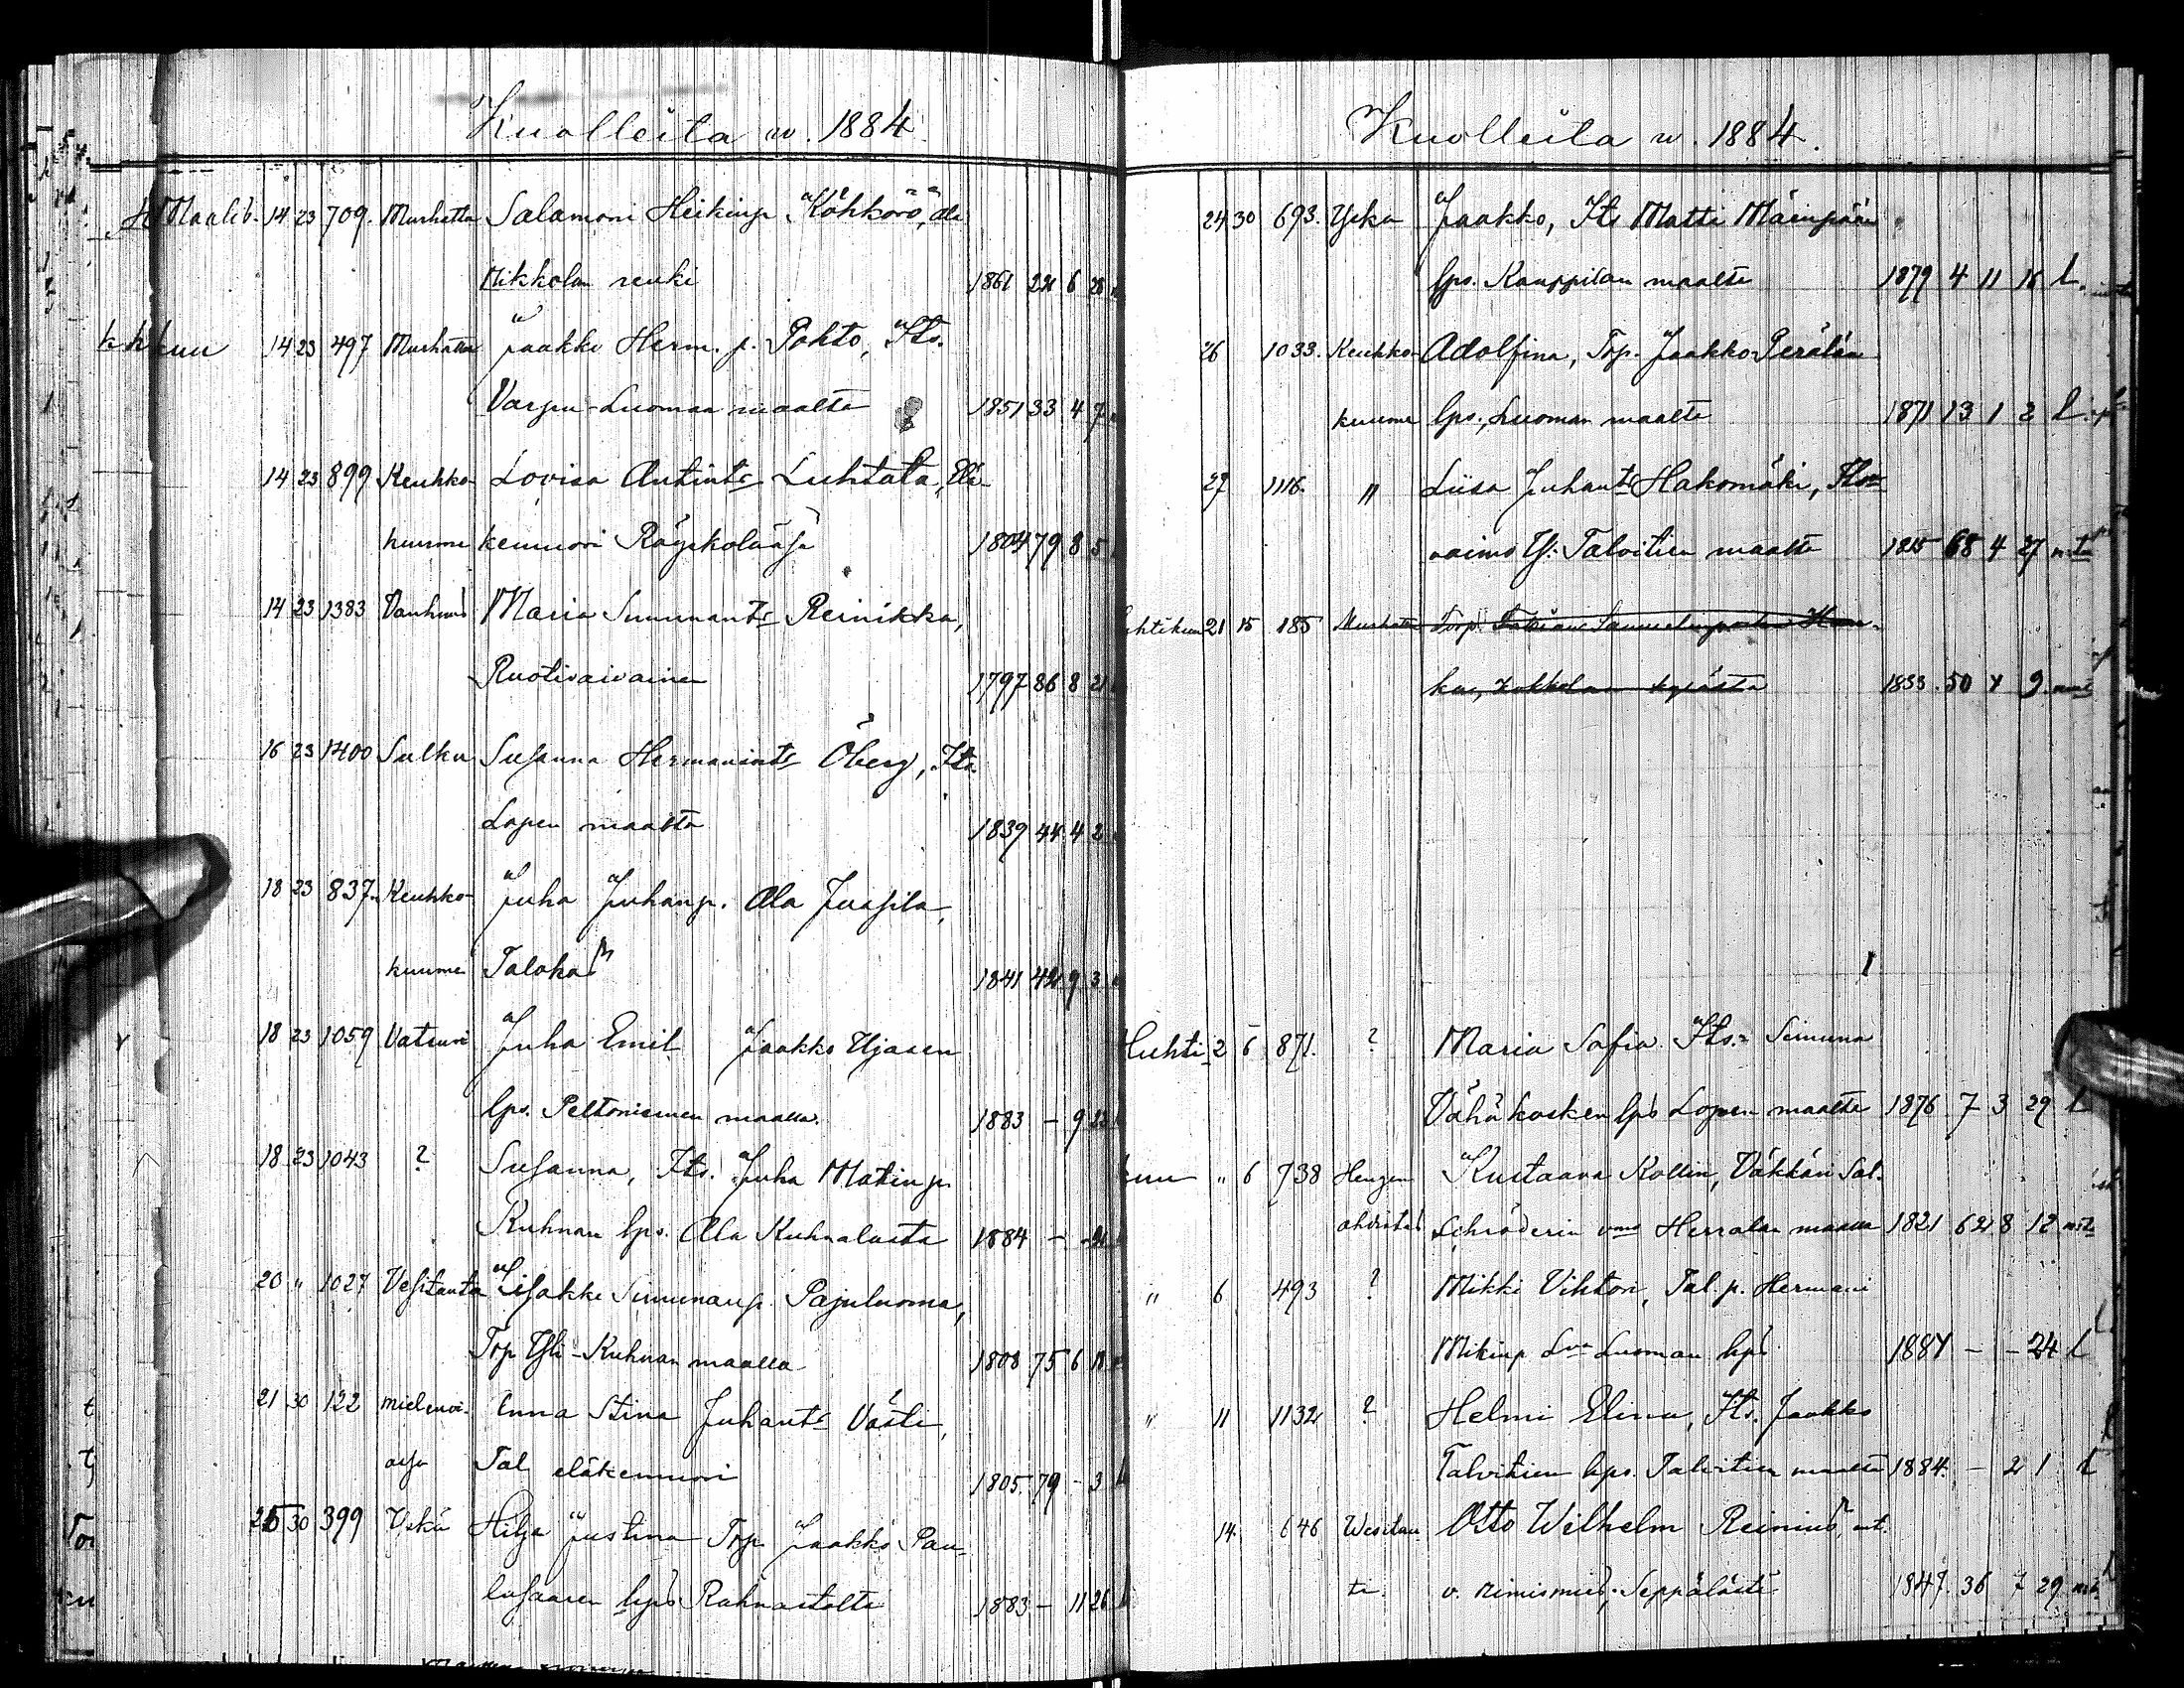 Kuolleita w. 1884
Maalisk. 14 23 709. Murhattu Salamoni Heikinp. Köhkörö, Ala
Mikkolan renki 1861 22 6 28
kuu 14 23 497 Murhattu Jaakko Herm. p. Pohto, Its.
Varpu-Luoman maalta 1851 33 4 7
14 23 899 Keuhko- Lovisa Antint:r Luhtala, Elä-
kuume kemuori Räyskolassa 1804 79 8 5
14 23 1383 Vanhuus Maria Simunant:r Reinikka,
Ruotivaivainen 1797 86 8 21
16 23 1400 Sulku Susanna Hermanint:r Öberg, Its.
Lopen maalta 1839 44 4 2
18 23 837. Keuhko- Juha Juhanp. Ala Juasila,
kuume Talokas 1841 42 9 3
18 23 1059 Vatsuri Juha Emil Jaakko Ujasen
lps. Peltoniemen maalla. 1883 - 9 23
18 23 1043 ? Susanna, Its. Juha Matinp.
Kuhnan lps. Ala Kuhnalasta 1884 - - 21
20 " 1027 Vesitauta Iisakki Simunanp. Pajuluoma,
Trp Yli-Kuhnan maalla 1808 75 6 18
21 30 122 mielenvi- Anna Stina Juhant:r Västi,
assa Tal. eläkemuori 1805. 79 - 3
25 30 399 Yskä Hilja Justina Trp. Jaakko Pau-
lasaaren lps Rahnastolta 1883 - 11 26
Kuolleita w. 1884.
24 30 693. Yskä Jaakko, Its Matti Mäenpään
lps. Kauppilan maalta 1879 4 11 16 l.
26 1033. Keuhko- Adolfina, Trp. Jaakko Perälän
kuume lps., Luoman maalta 1871 13 1 2 l.
27 1116. " Liisa Juhant:r Hakomäki, Its:n
vaimo Yl. Talvitien maalta 1815 68 4 27 n.
Huhtikuu 21 15 185 Murhattu Torp. Fabian Samuelinpoika
kylästä 1833. 50 4 9.
Huhti- 2 6 871. ? Maria Sofia Its:n Simuna
Vähäkosken lps Lopen maalta 1876 7 3 29 l
kuu " 6 738 Hengen Kustaava Kollin, Väkkän Sal.
ahdistus Schröderin vmo Herralan maalla 1821 62 8 12
" 6 493 ? Mikki Vihtori, Tal. p. Hermani
Mikinp Luoman lps 1884 - - 24 l
" 11 1132 ? Helmi Elina, Its. Jaakko
Talvitien lps. Talvitien maalta 1884. - 2 1 l
14. 646 Wesitau- Otto Wilhelm Reinius, ent.
ti. v. nimismies, Seppälästä 1847. 36 7 29